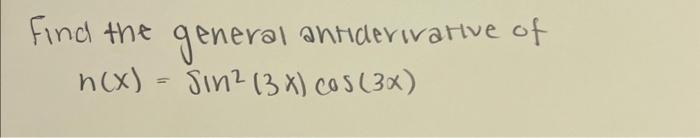 Find the general antiderivative of
h(x) = sin² (3x) cos(3x)